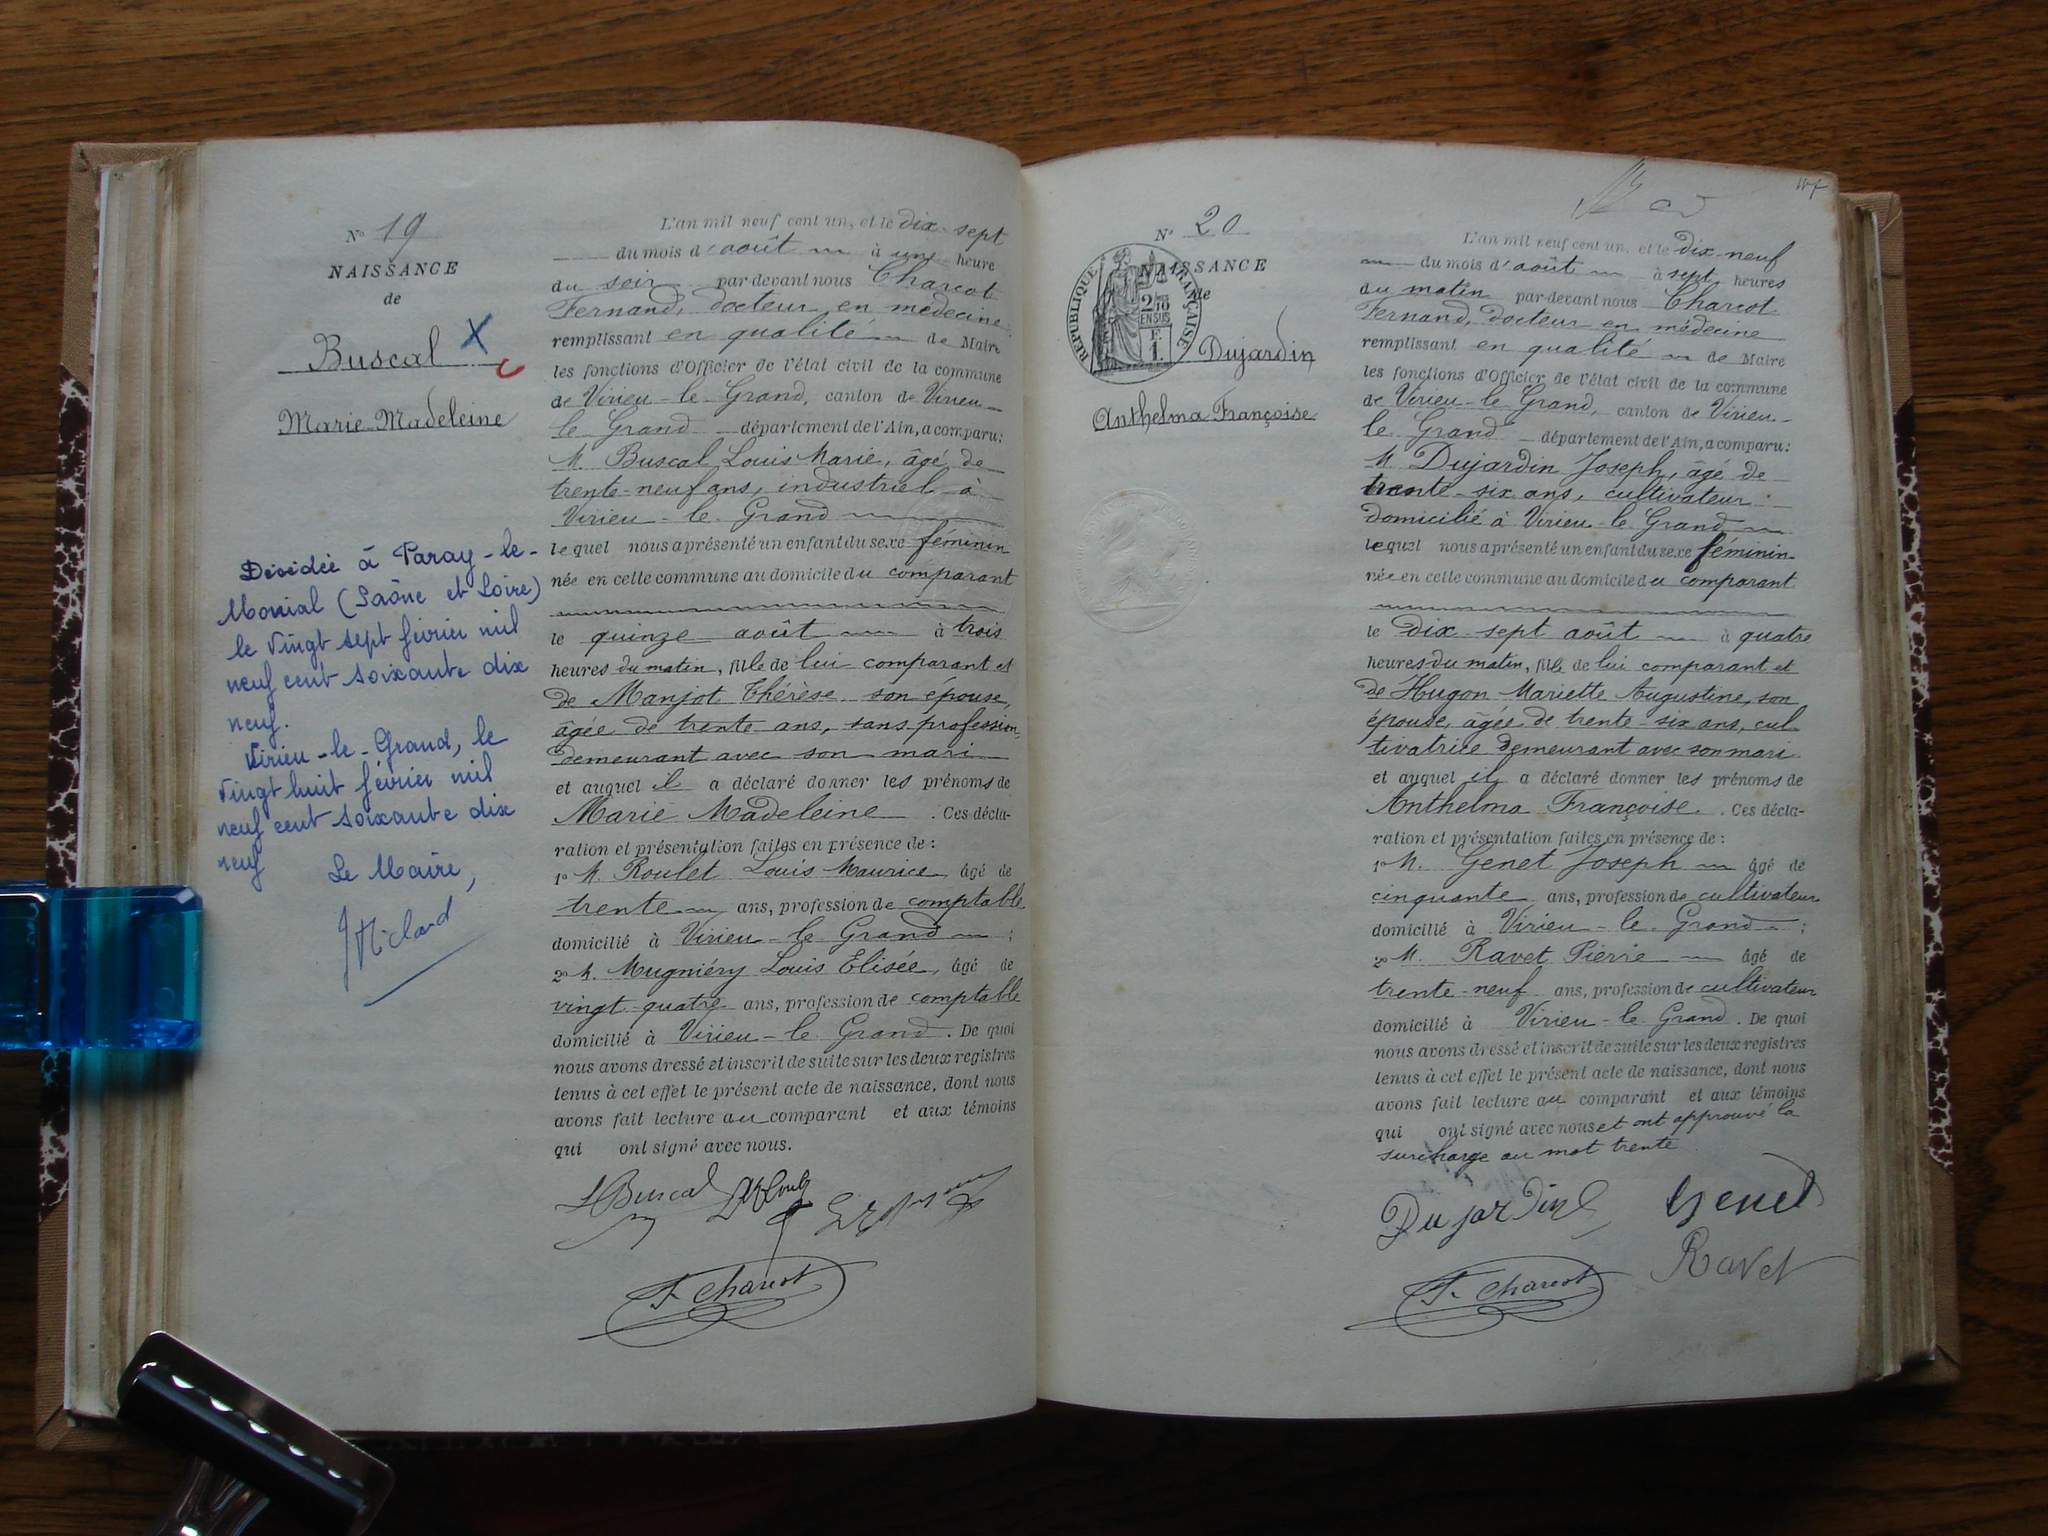 N° 19
NAISSANCE
de
Buscal
Marie Madeleine
Décédée à Paray-le-
Monial (Saône et Loire)
le vingt sept février mil
neuf cent soixante dix
neuf.
Virieu-le-Grand, le
vingt huit février mil
neuf cent soixante dix
neuf
Le Maire,
L'an mil neuf cent un, et le dix-sept
du mois d'août à une heure
du soir par-devant nous Charcot
Fernand, docteur en médecine
remplissant en qualité de Maire
les fonctions d'Officier de l'état civil de la commune
de Virieu-le-Grand, canton de Virieu-
le Grand département de l'Ain, a comparu:
M. Buscal Louis Marie, âgé de
trente-neuf ans, industriel à
Virieu-le-Grand
lequel nous a présenté un enfant du sexe féminin
née en cette commune au domicile du comparant
le quinze août à trois
heures du matin, fille de lui comparant et
de Manjot Thérèse son épouse,
âgée de trente ans, sans profession,
demeurant avec son mari
et auquel il a déclaré donner les prénoms de
Marie Madeleine. Ces décla-
ration et présentation faites en présence de:
1° M. Roulet Louis Maurice, âgé de
trente ans, profession de comptable
domicilié à Virieu-le-Grand;
2° M. Mugniéry Louis Elisée, âgé de
vingt-quatre ans, profession de comptable
domicilié à Virieu-le-Grand. De quoi
nous avons dressé et inscrit de suite sur les deux registres
tenus à cet effet le présent acte de naissance, dont nous
avons fait lecture au comparant et aux témoins
qui ont signé avec nous.
L Buscal
F. Charcot
N° 20
NAISSANCE
de
RÉPUBLIQUE FRANÇAISE
2/10 EN SUS
F. 1.
Dujardin
Anthelma Françoise
L'an mil neuf cent un, et le dix-neuf
du mois d'août à sept heures
du matin par-devant nous Charcot
Fernand, docteur en médecine
remplissant en qualité de Maire
les fonctions d'Officier de l'état civil de la commune
de Virieu-le-Grand, canton de Virieu-
le Grand département de l'Ain, a comparu:
M. Dujardin Joseph, âgé de
trente-six ans, cultivateur
domicilié à Virieu-le-Grand
lequel nous a présenté un enfant du sexe féminin
née en cette commune au domicile du comparant
le dix-sept août à quatre
heures du matin, fille de lui comparant et
de Hugon Mariette Augustine, son
épouse, âgée de trente-six ans, cul
tivatrice demeurant avec son mari
et auquel il a déclaré donner les prénoms de
Anthelma Françoise. Ces décla-
ration et présentation faites en présence de:
1° M. Genet Joseph âgé de
cinquante ans, profession de cultivateur
domicilié à Virieu-le-Grand;
2° M. Ravet Pierre âgé de
trente-neuf ans, profession de cultivateur
domicilié à Virieu-le-Grand. De quoi
nous avons dressé et inscrit de suite sur les deux registres
tenus à cet effet le présent acte de naissance, dont nous
avons fait lecture au comparant et aux témoins
qui ont signé avec nous et ont approuvé la
surcharge au mot trente
Dujardin Genet
Ravet
F. Charcot